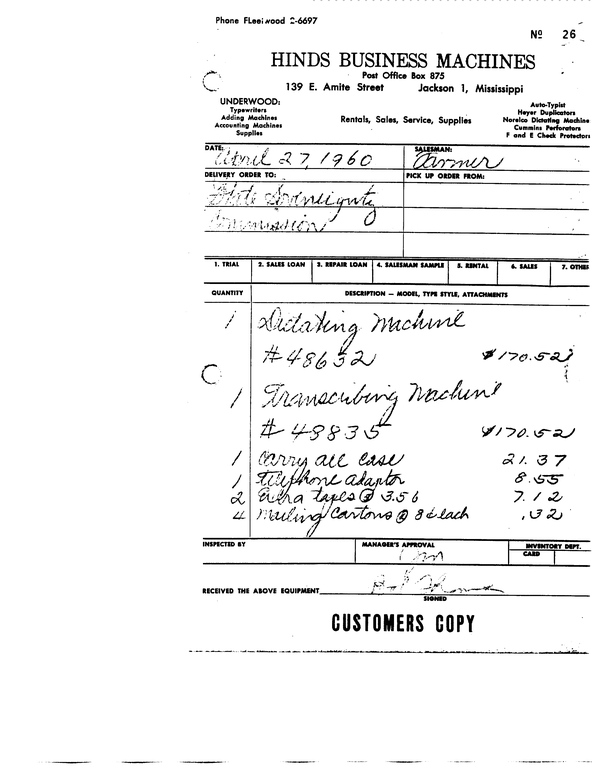 Phone FLeetwood 2-6697
Nº 26
HINDS BUSINESS MACHINES
Post Office Box 875
139 E. Amite Street Jackson 1, Mississippi
UNDERWOOD:
Typewriters
Adding Machines
Accounting Machines
Supplies
Rentals, Sales, Service, Supplies
Auto-Typist
Heyer Duplicators
Norelco Dictating Machine
Cummins Perforators
F and E Check Protectors
DATE: April 27, 1960
SALESMAN: Farmer
DELIVERY ORDER TO:
PICK UP ORDER FROM:
State Sovereignty
Commission
1. TRIAL 2. SALES LOAN 3. REPAIR LOAN 4. SALESMAN SAMPLE 5. RENTAL 6. SALES 7. OTHER
QUANTITY DESCRIPTION — MODEL, TYPE STYLE, ATTACHMENTS
1 Dictating Machine
#48632 $170.52
1 Transcribing Machine
#48835 $170.52
1 Carry all case 21.37
1 telephone adaptor 8.55
2 Extra tapes @ 3.56 7.12
4 Mailing Cartons @ 8¢ each .32
INSPECTED BY
MANAGER'S APPROVAL
INVENTORY DEPT.
CARD
RECEIVED THE ABOVE EQUIPMENT
SIGNED
CUSTOMERS COPY